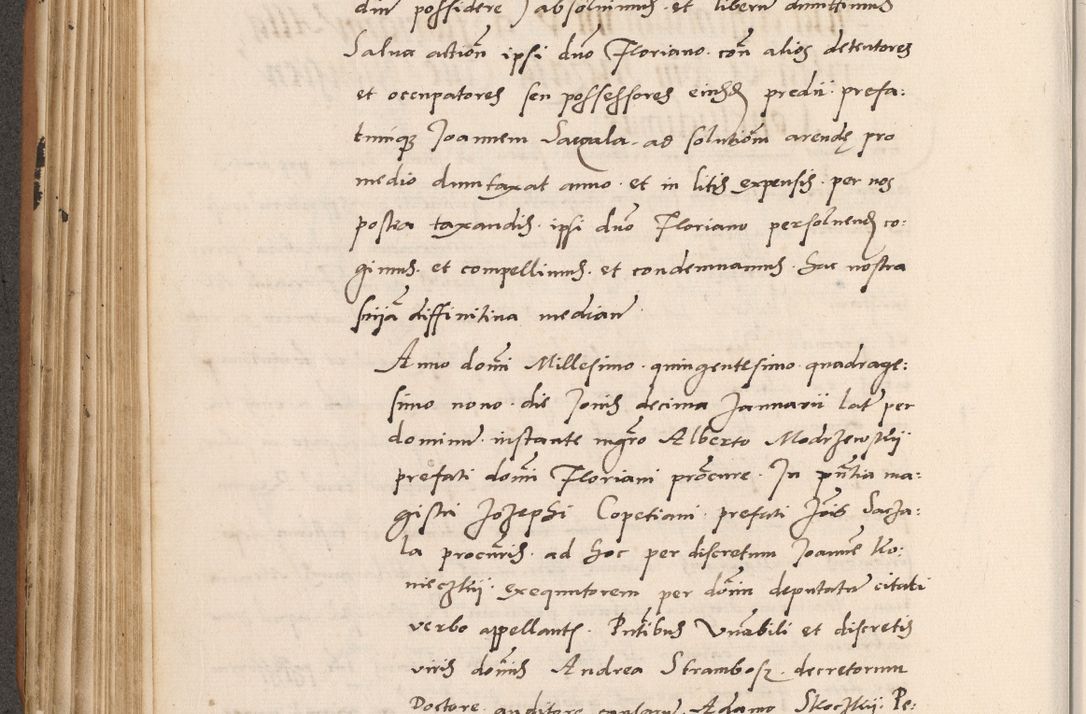 diu possidere) absoluimus et liberu dimittimus
Salua actiōn ipsi dno Floriano con alios detentores
et occupatores seu possessores eiusd predii prefa:
tumq Joannem Saczala ad solutiōm arendę pro
medio dumtaxat anno et in litis expensis per nos
postea taxandis ipsi dno Floriano persoluend co:
gimus et compellimus et condemnamus hac nostra
snia diffinitiua median
Anno domi Millesimo quingentesimo quadrage:
simo nono die Jouis decima Januarii lat per
dominu instante mgro Alberto Modrzewskij
prefati domi Floriani procure In pntia ma:
gistri Jozephi Copetiani prefati Jois Sacza:
la procuris ad hoc per discretum Joanne Ko:
nieczkij exequutorem per domi deputatu citati
verbo appellant Pntibus Vnabili et discretis
viris domis Andrea Strambosz decretorum
Doctore auditore causarum Adamo Skoczkij Pe: